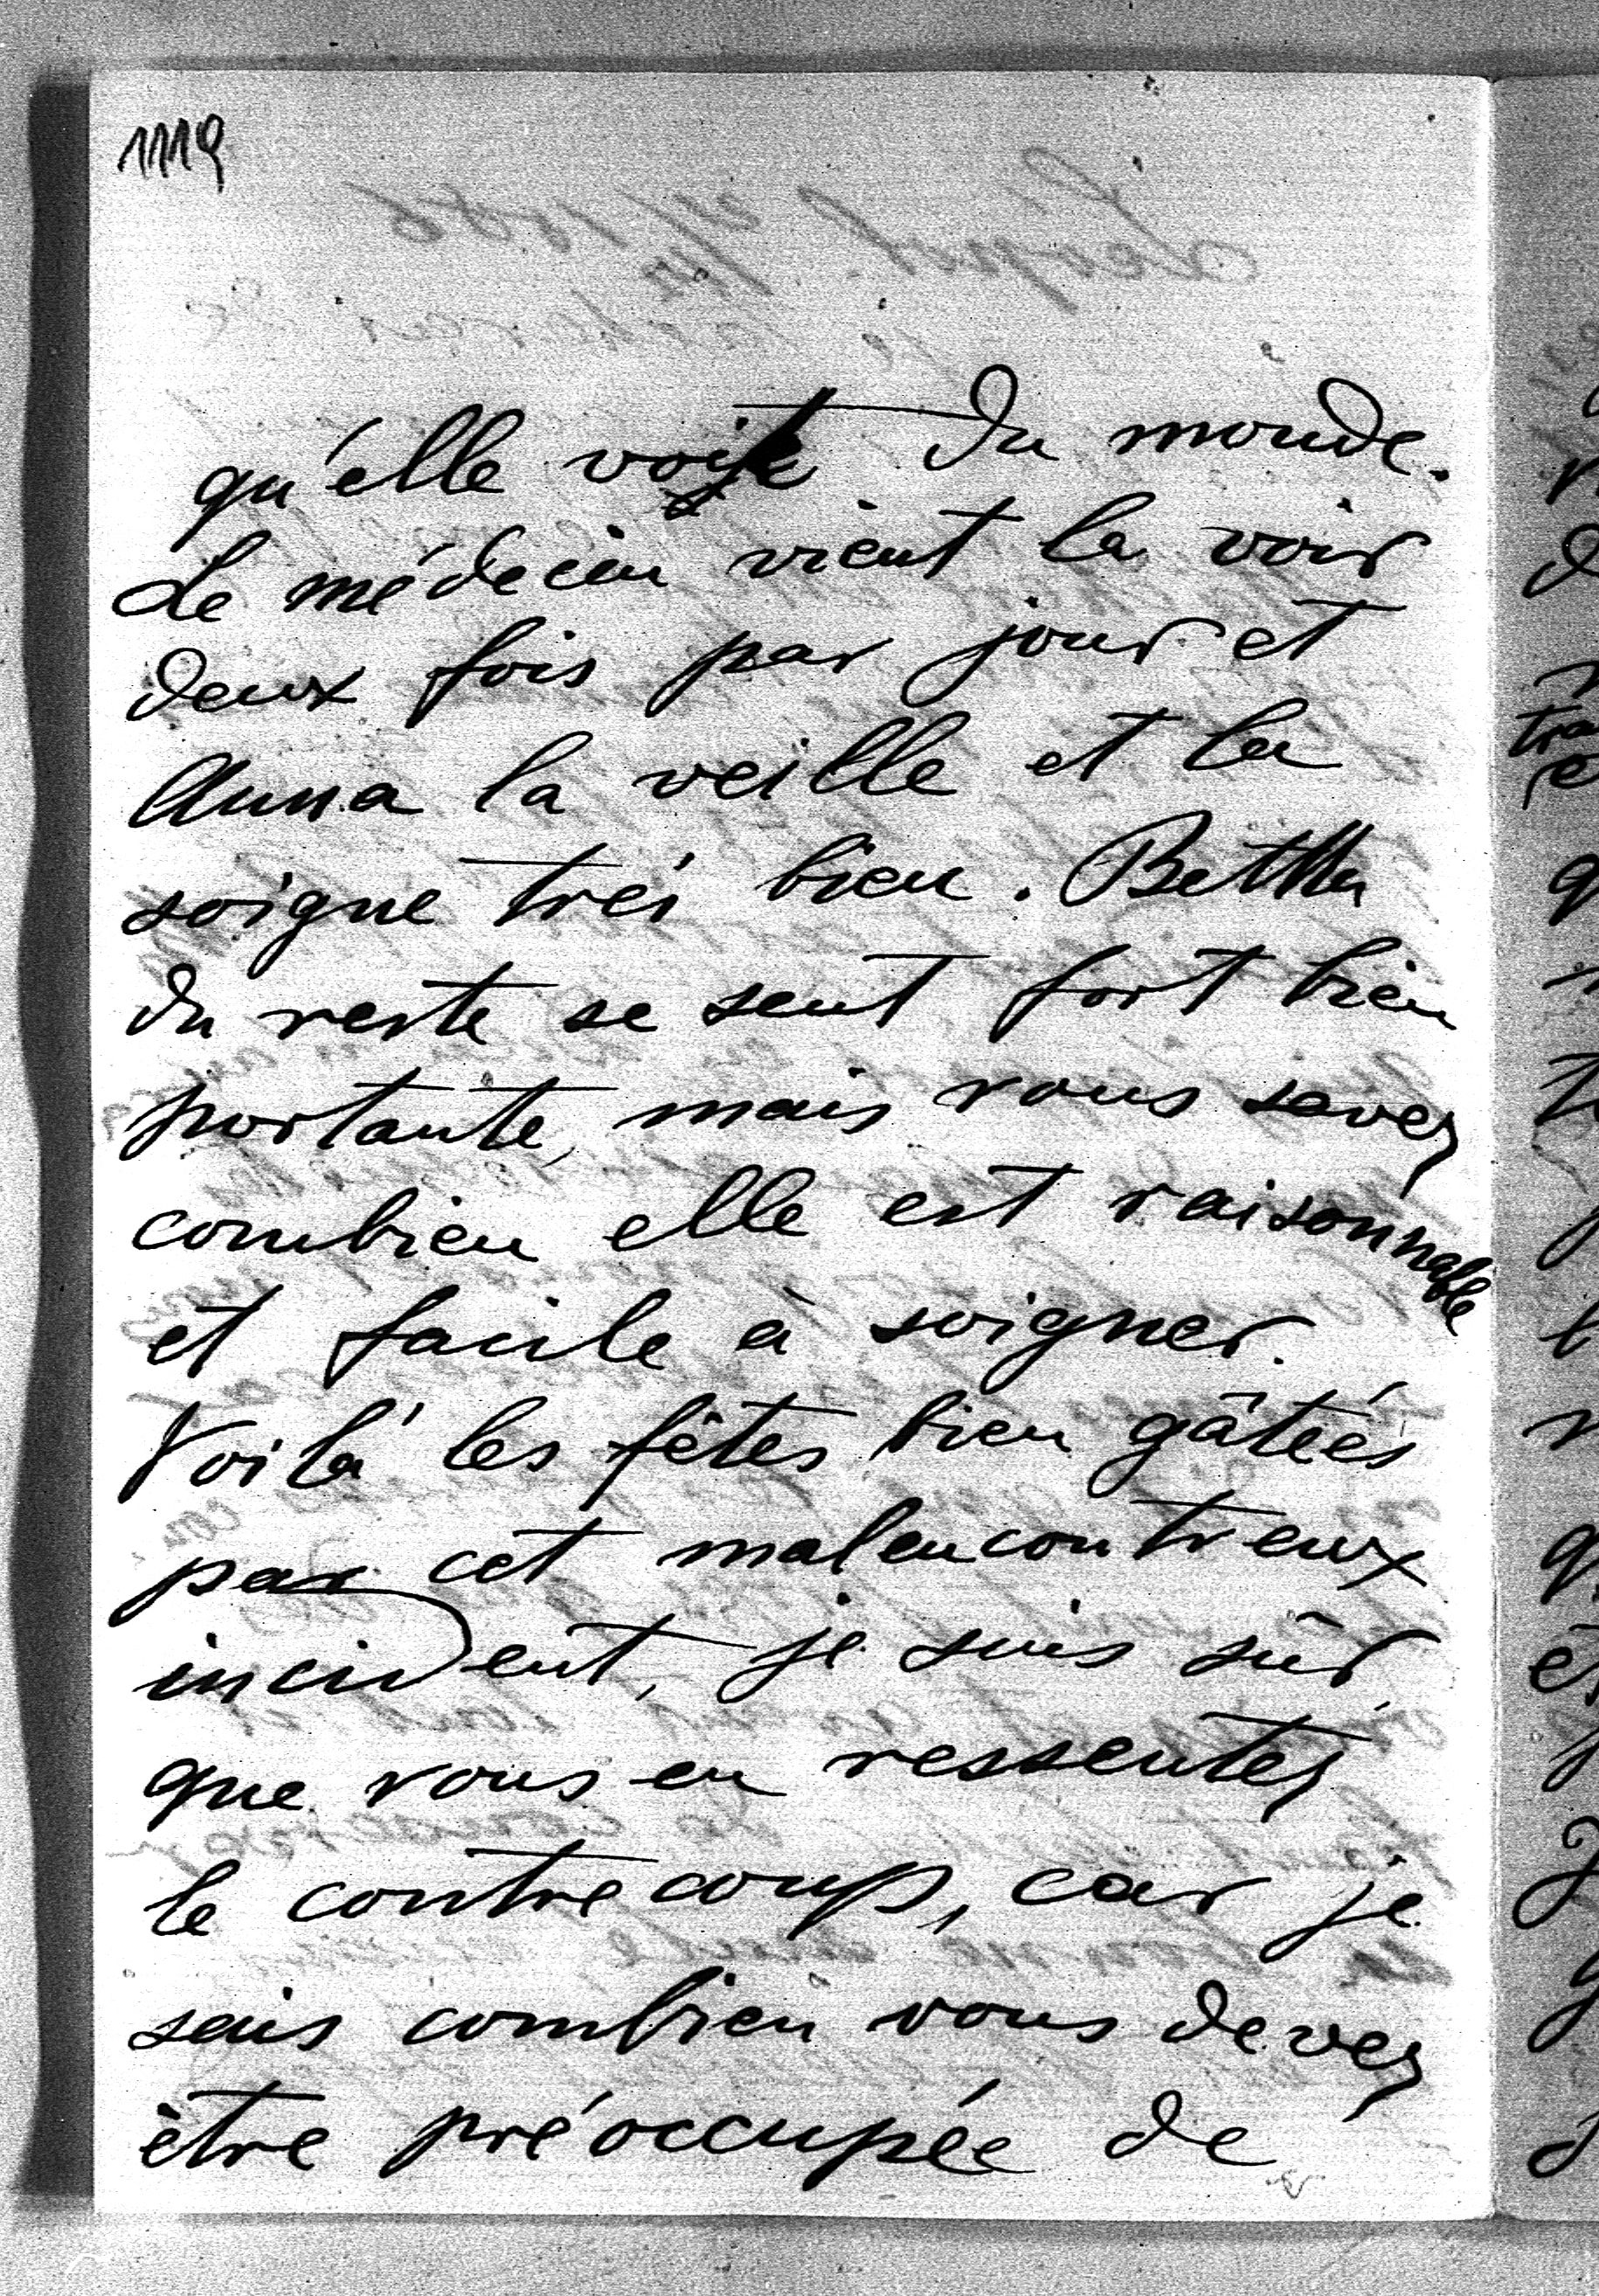 1119
qu'elle voit du monde.
Le médecin vient la voir
deux fois par jour et
Anna la veille et la
soigne très bien. Betha
du reste se sent fort bien
portante, mais vous savez
combien elle est raisonnable
et facile à soigner.
Voilà les fêtes bien gâtées
par cet malencontreux
incident, je suis sûr,
que vous en ressentez
le contre coup, car je
sais combien vous devez
être préoccupée de